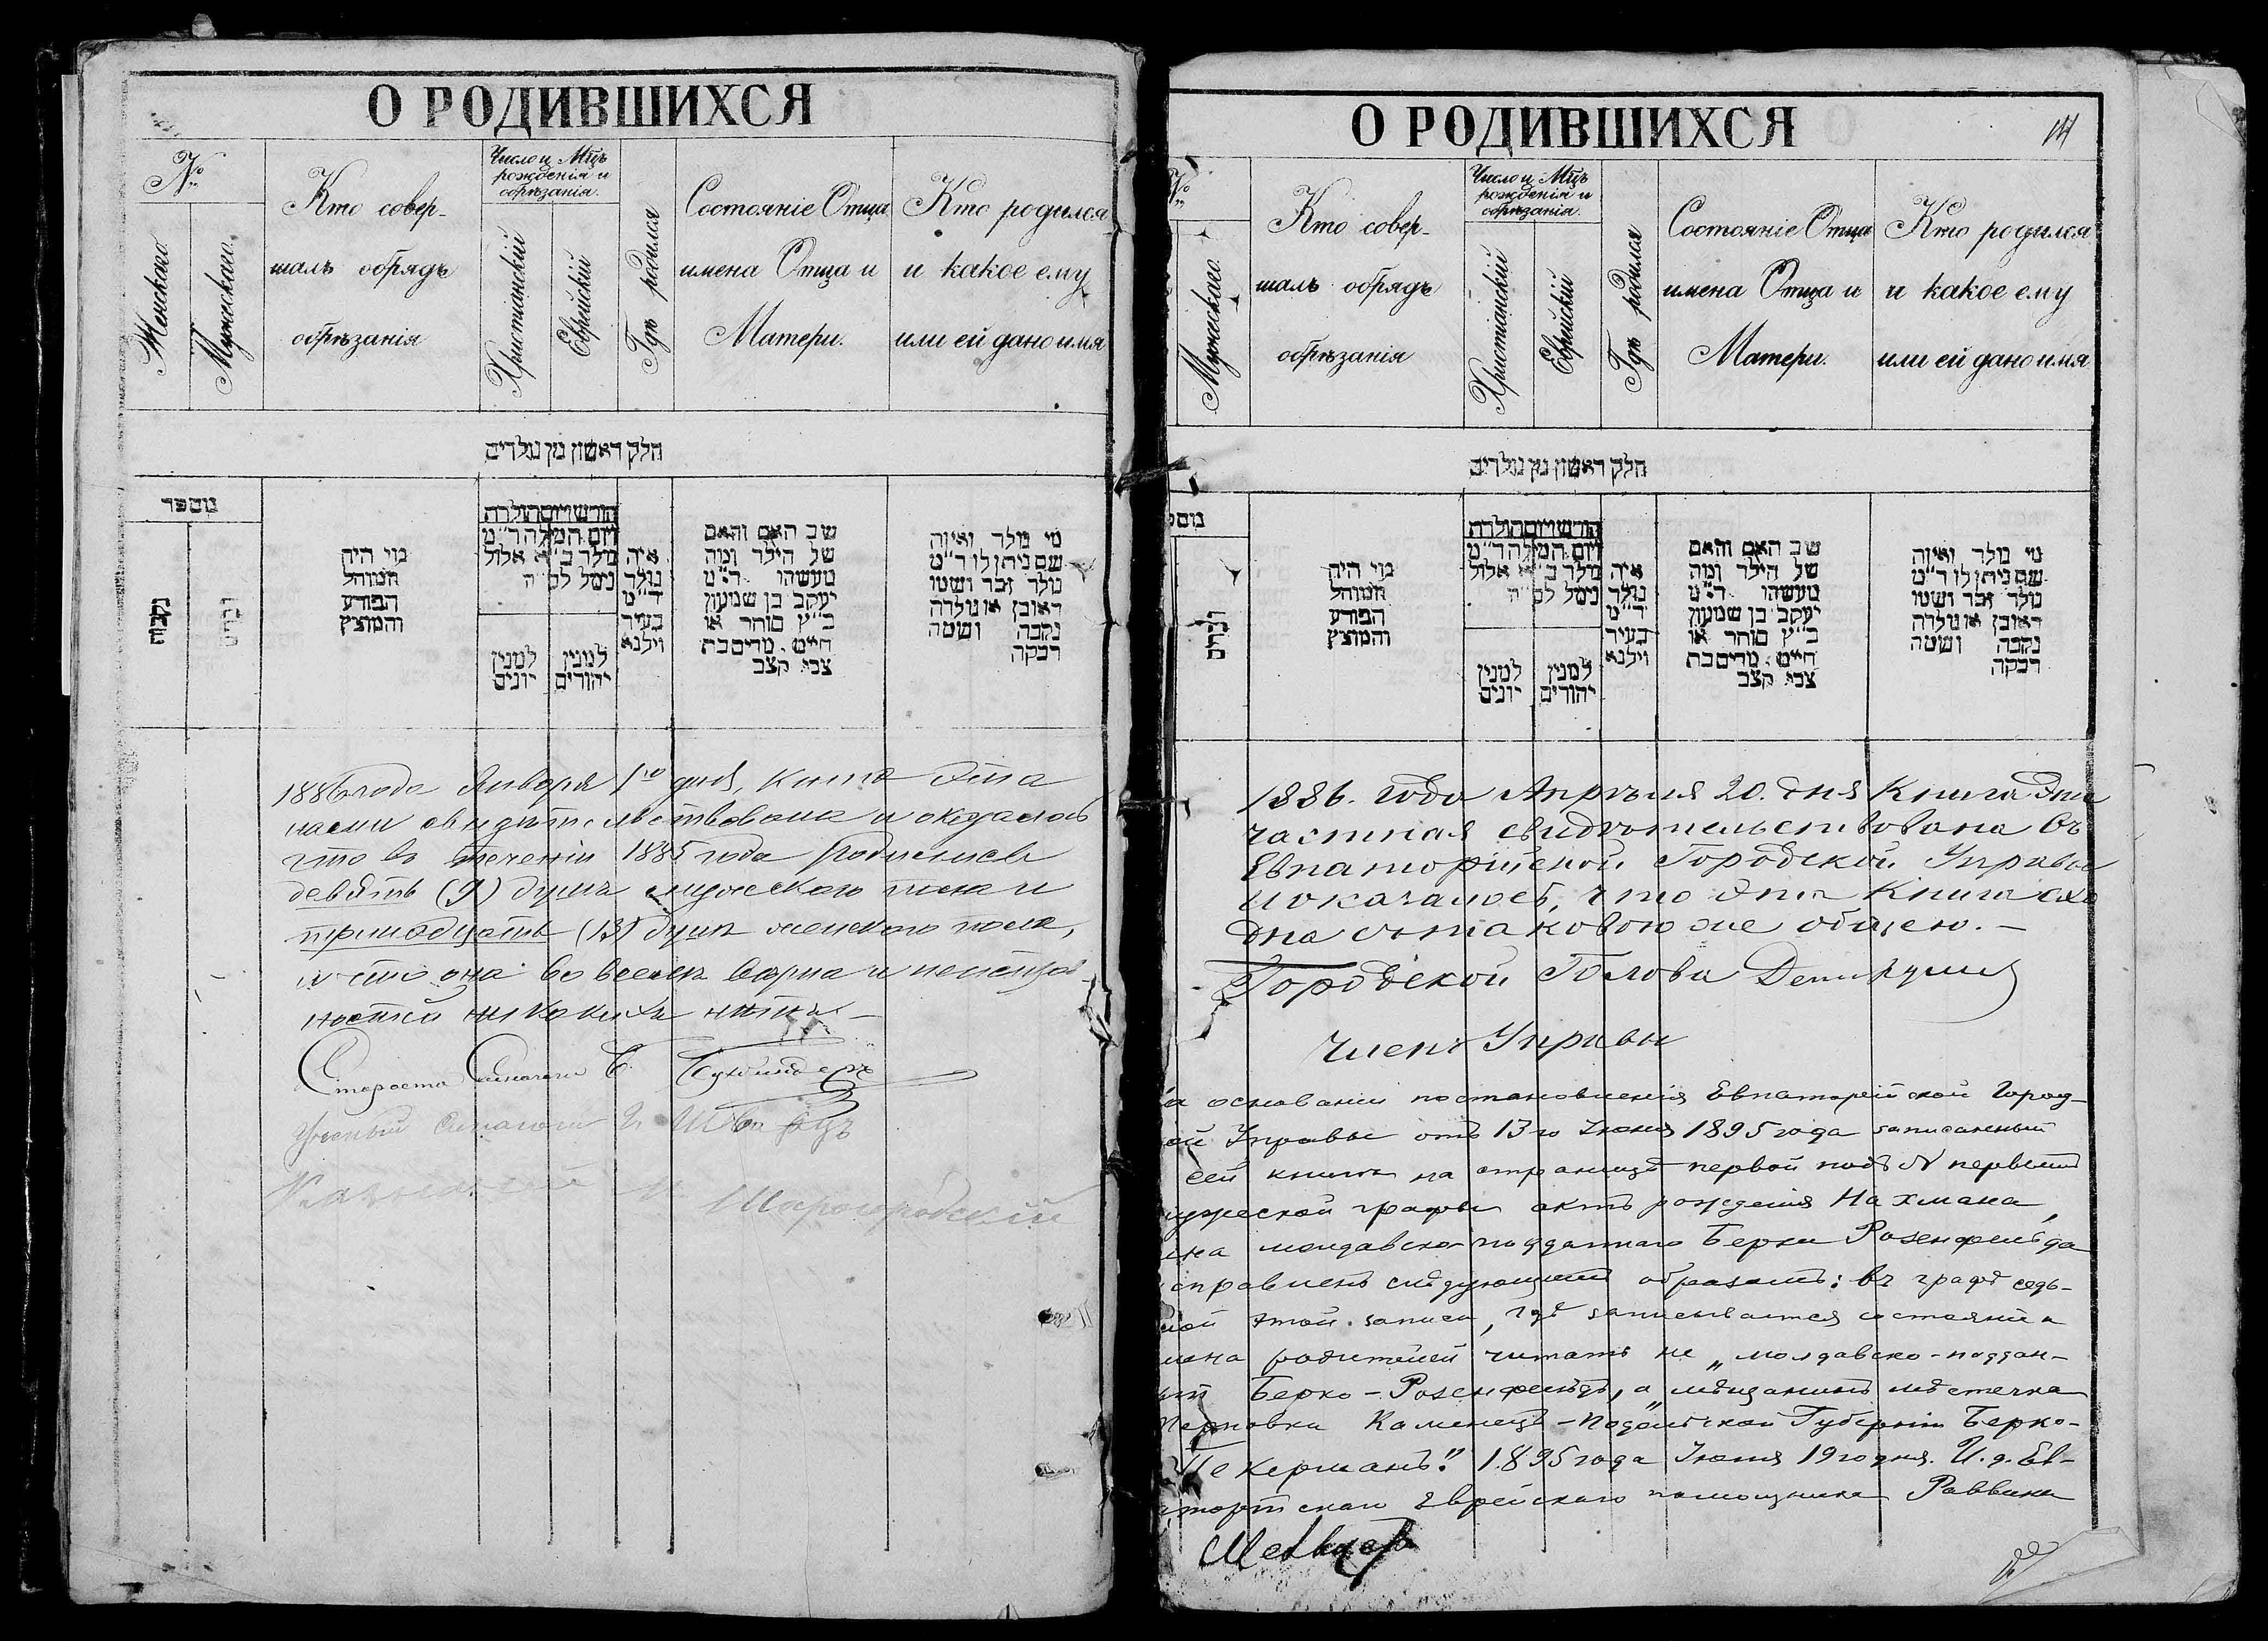 О РОДИВШИХСЯ
№
Женскаго.
Мужескаго.
Кто совер-
шалъ обрядъ
обрѣзанія
Число и Мцъ
рожденія и
обрѣзанія.
Христіанскій
Еврейскій
Гдѣ родился
Состояніе Отца
имена Отца и
Матери.
Кто родился
и какое ему
или ей дано имя
חלק ראשון מן נולדים
מספר
נקבות
זכרים
מי היה
המוהל
הפורע
והמוצץ
חודש ויום הולדת
ויום המילה ד״מ
נולד ב״א אלול
נימל לס״ה
למנין
יונים
למנין
יהודים
איה
נולד
ד״מ
בעיר
וילנא
שב האם והאם
של הילד ומה
מעשהו ד״מ
יעקב בן שמעון
כ״ץ סוחר או
חייט. מרים בת
צבי קצב
מי נולד ואיזה
שם ניתן לו ד״מ
נולד זכר ושמו
ראובן או נולדה
נקבה ושמה
רבקה
1886 года Января 1го дня, книга эта
нами свидѣтельствована и оказалось
что въ теченіи 1885 года родилися
девять (9) душъ мужескаго пола и
тринадцать (13) душъ женскаго пола,
и что она во всемъ вѣрна и
никакихъ нѣтъ —
Староста Синагоги Б.
Ученый Синагоги И. Шварцъ
Казначей М. Шарогородскій
О РОДИВШИХСЯ
14
№
Мужескаго.
Кто совер-
шалъ обрядъ
обрѣзанія
Число и Мцъ
рожденія и
обрѣзанія.
Христіанскій
Еврейскій
Гдѣ родился
Состояніе Отца
имена Отца и
Матери.
Кто родился
и какое ему
или ей дано имя
חלק ראשון מן נולדים
זכרים
מי היה
המוהל
הפורע
והמוצץ
חודש ויום הולדת
ויום המילה ד״מ
נולד ב״א אלול
נימל לס״ה
למנין
יונים
למנין
יהודים
איה
נולד
ד״מ
בעיר
וילנא
שב האם והאם
של הילד ומה
מעשהו ד״מ
יעקב בן שמעון
כ״ץ סוחר או
חייט. מרים בת
צבי קצב
מי נולד ואיזה
שם ניתן לו ד״מ
נולד זכר ושמו
ראובן או נולדה
נקבה ושמה
רבקה
1886. года Апрѣля 20. дня Книга эта
частная свидѣтельствована въ
Евпаторійской Городской Управѣ
и оказалось, что эта Книга схо
дна съ таковою же общею. —
Городской Голова
Членъ Управы
основаніи постановленія Евпаторійской Город-
ой Управы отъ 13го Іюня 1895 года записанный
сей книги на страницѣ первой подъ № первымъ
ужеской графы актъ рожденія Нахмана,
ына молдавско-подданнаго Берки Розенфельда
справленъ слѣдующимъ образомъ: въ графѣ седь-
мой этой записи, гдѣ записывается состояніе и
мена родителей читать не „молдавско-поддан-
ый Берко-Розенфельдъ, а „мѣщанинъ мѣстечка
Каменецъ-Подольской Губерніи Берко-
Пекерманъ". 1895 года Іюня 19го дня. И. д. Ев-
торійскаго Еврейскаго помощника Раввина